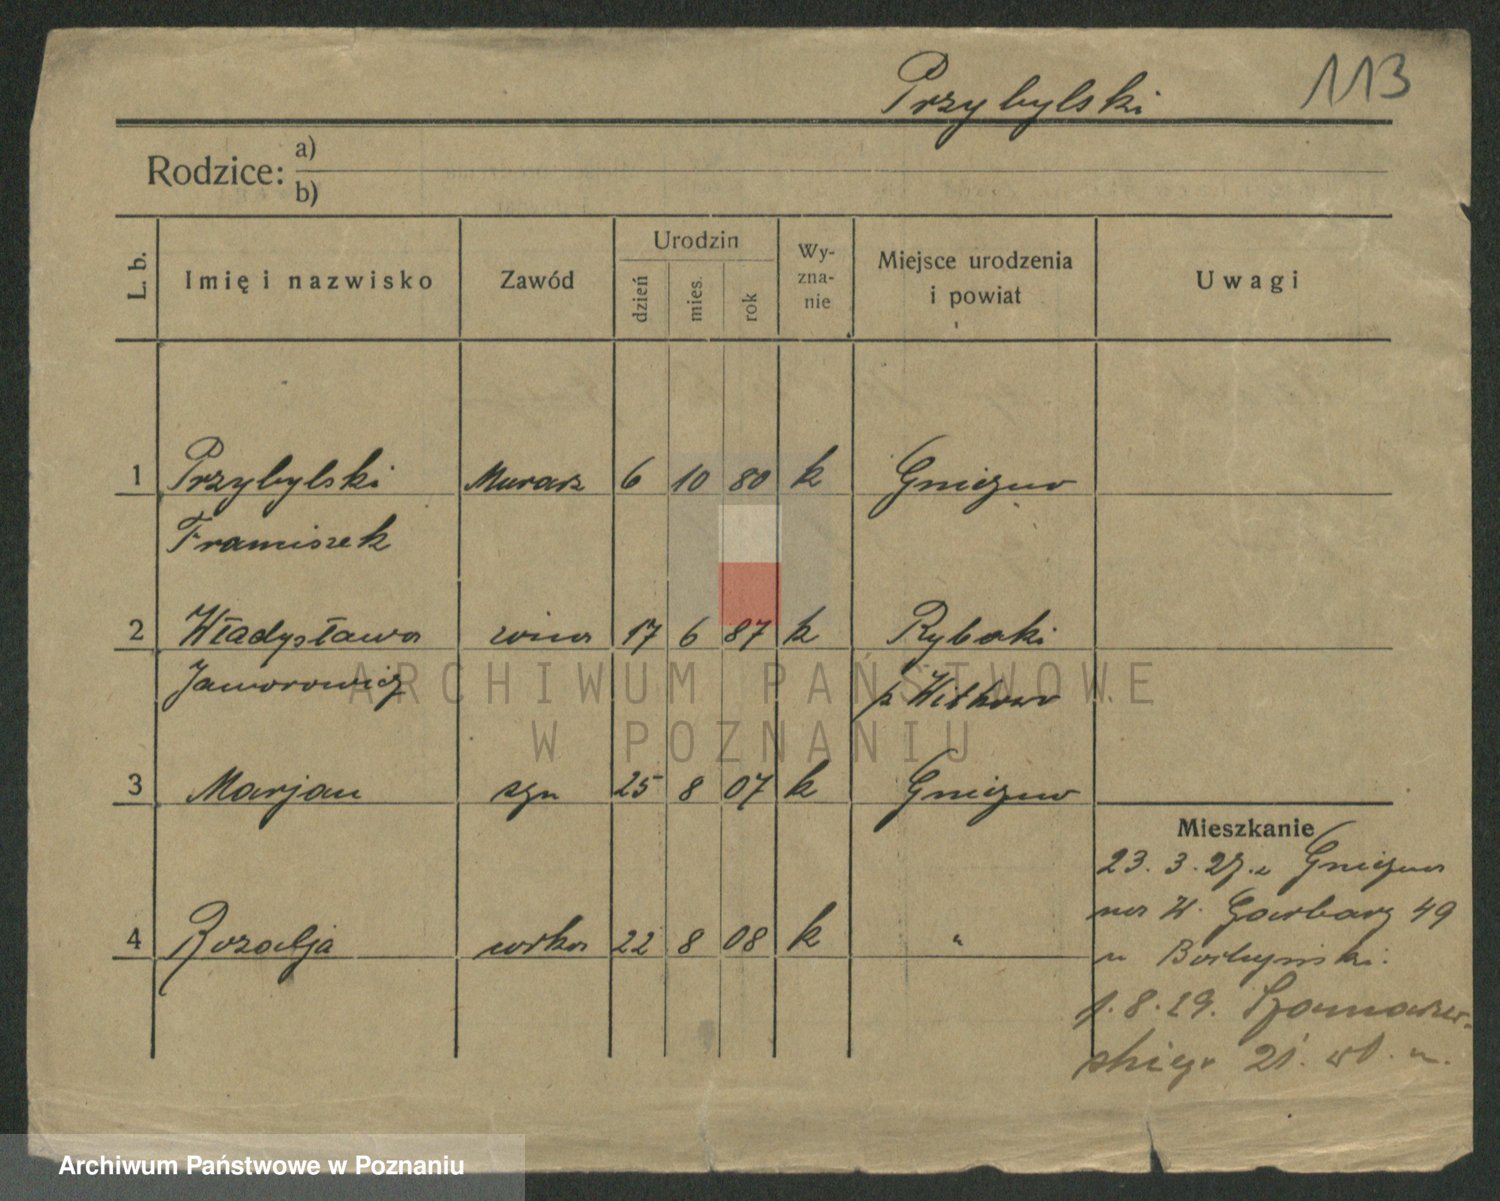 Przybylski 113
Rodzice: a)
b)
L. b. Imię i nazwisko Zawód Urodzin dzień mies. rok Wy-zna-nie Miejsce urodzenia i powiat Uwagi
1 Przybylski Murarz 6 10 80 k Gniezno
Franciszek
2 Władysława żona 17 6 87 k Rybaki
Jaworowicz p. Witkowo
3 Marjan syn 25 8 07 k Gniezno
4 Rozalja córka 22 8 08 k "
Mieszkanie
23. 3. 27. z Gniezna
na W. Garbary 49
u
1. 8. 29.
skiego 21.
ARCHIWUM PAŃSTWOWE
W POZNANIU
Archiwum Państwowe w Poznaniu